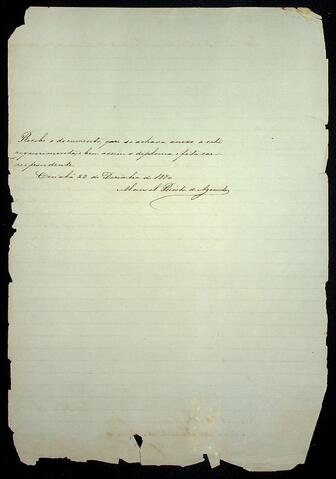 Recebi o documento, que se achava anexo a este
requerimento, e bem assim o diploma, e fita cor-
respondente.
Cuiabá 22 de Dezembro de 1870
Manoel Bento de